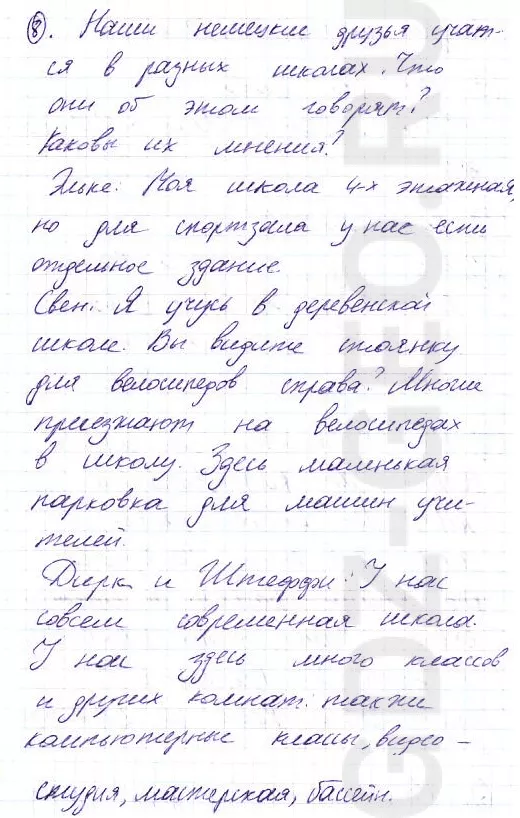 8. Наши немецкие друзья учат-
ся в разных школах. Что
они об этом говорят?
Каковы их мнения?
Эльке: Моя школа 4-х этажная,
но для спортзала у нас есть
отдельное здание.
Свен: Я учусь в деревенской
школе. Вы видите стоянку
для велосипедов справа? Многие
приезжают на велосипедах
в школу. Здесь маленькая
парковка для машин учи-
телей.
Дирк и Штеффи: У нас
совсем современная школа.
У нас здесь много классов
и других комнат: также
компьютерные классы, видео-
студия, мастерская, бассейн.
GDZ-GEO.RU